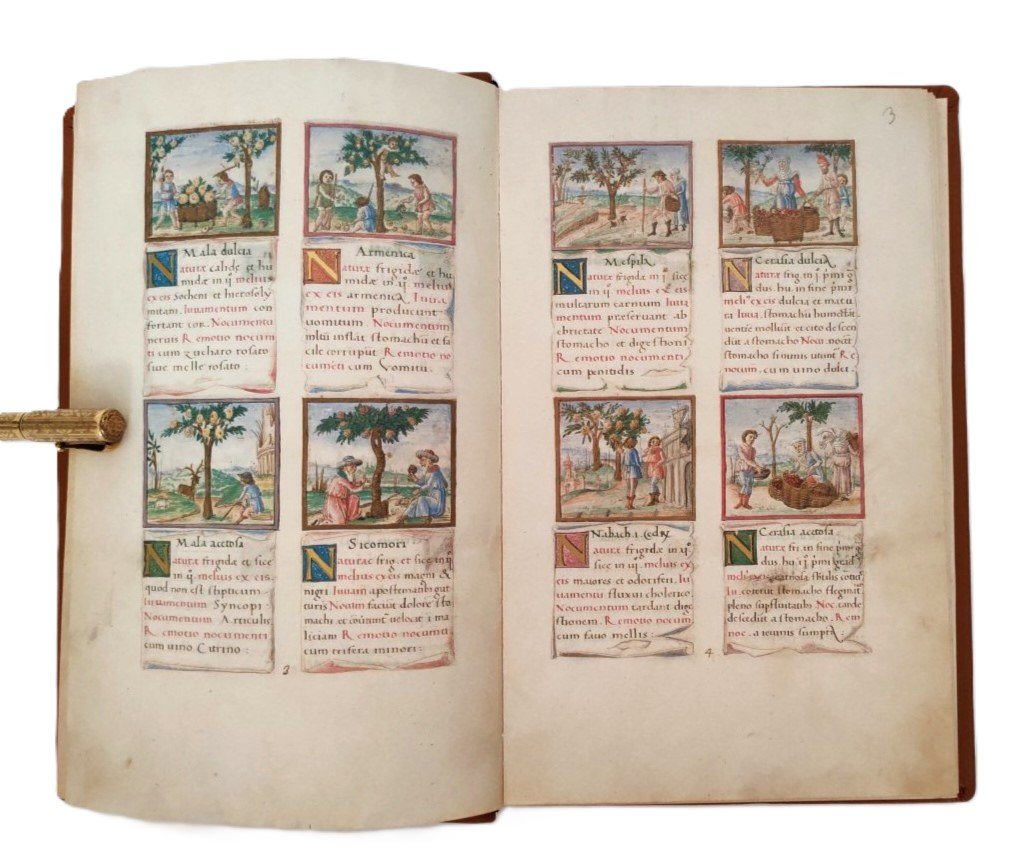 3
Mala dulcia
Naturæ calidę et hu
midæ in ij. melius
ex eis Socheni et hierosoly
mitani. Iuuamentum con
fortant cor. Nocumentũ
neruis Remotio nocum
ti cum zucharo rosato
siue melle rosato:
Armenica
Naturæ frigidæ et hu
midæ in ij. melius
ex eis armenica Iuua
mentum producunt
uomitum Nocumentum
inflat stomachũ et fa
cile corrũput Remotio no
cumẽti cum Vomitu.
Mala acetosa
Naturæ frigidæ et sice
in ij. melius ex eis.
quod non est stipticum
Iuuamentum Syncopi.
Nocumentum Articulis
Remotio nocumenti
cum uino Citrino:
Sicomori
Naturae frig. et sice in ij
melius ex eis magni &
nigri Iuuam apostematibus gut
turis Nocum faciũt dolorẽ sto
machi et
Remotio nocumti.
cum trifera minori:
3
Mespila
Naturæ frigidæ in j. sice
in ij. melius ex eis
multarum carnium Iuua
mentum præseruant ab
ebrietate Nocumentum
stomacho et digestioni
Remotio nocumenti
cum penitidis
Cerasia dulcia
Naturæ frig in j.
dus. hu. in fine
ex eis dulcia et matu
ra Iuua. stomachũ humectãt
uentrẽ molliũt et cito descen
dũt a stomacho Nocu. nocẽt
stomacho si nimis utunt Re
nocum. cum uino dulci.
Nabach i. cedrx
Naturæ frigidæ in ij.
sice in iij. melius ex
eis maiores et odoriferi. Iu
uamentũ fluxui cholerico
Nocumentum tardant dige
stionem. Remotio nocum
cum fauo mellis:
Cerasia acetosa
Naturæ fri. in fine
dus. hu ij.
Iu. conferũt stomacho flegmat
pleno Noc. tarde
descẽdũt a stomacho. Rem
noc. a ieiunis sumpta:
4